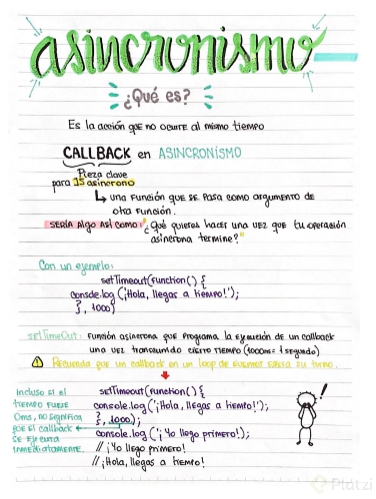 asincronismo
¿Qué es?
Es la acción que no ocurre al mismo tiempo
CALLBACK en ASINCRONÍSMO
Pieza clave
para JS asíncrono
una Función que se pasa como argumento de
otra Función.
sería algo así como: "¿qué quieres hacer una vez que tu operación
asíncrona termine?"
Con un ejemplo:
setTimeout(function() {
console.log('¡Hola, llegas a tiempo!');
}, 1000)
setTimeOut: Función asíncrona que programa la ejecución de un callback
una vez transcurrido cierto tiempo (1000ms = 1 segundo)
Recuerda que un callback en un loop de eventos espera su turno.
Incluso si el
tiempo fuese
0ms, no significa
que el callback
se ejecuta
inmediatamente.
setTimeout(function() {
console.log('¡Hola, llegas a tiempo!');
}, 1000);
console.log('¡Yo llego primero!');
// ¡Yo llego primero!
// ¡Hola, llegas a tiempo!
Platzi